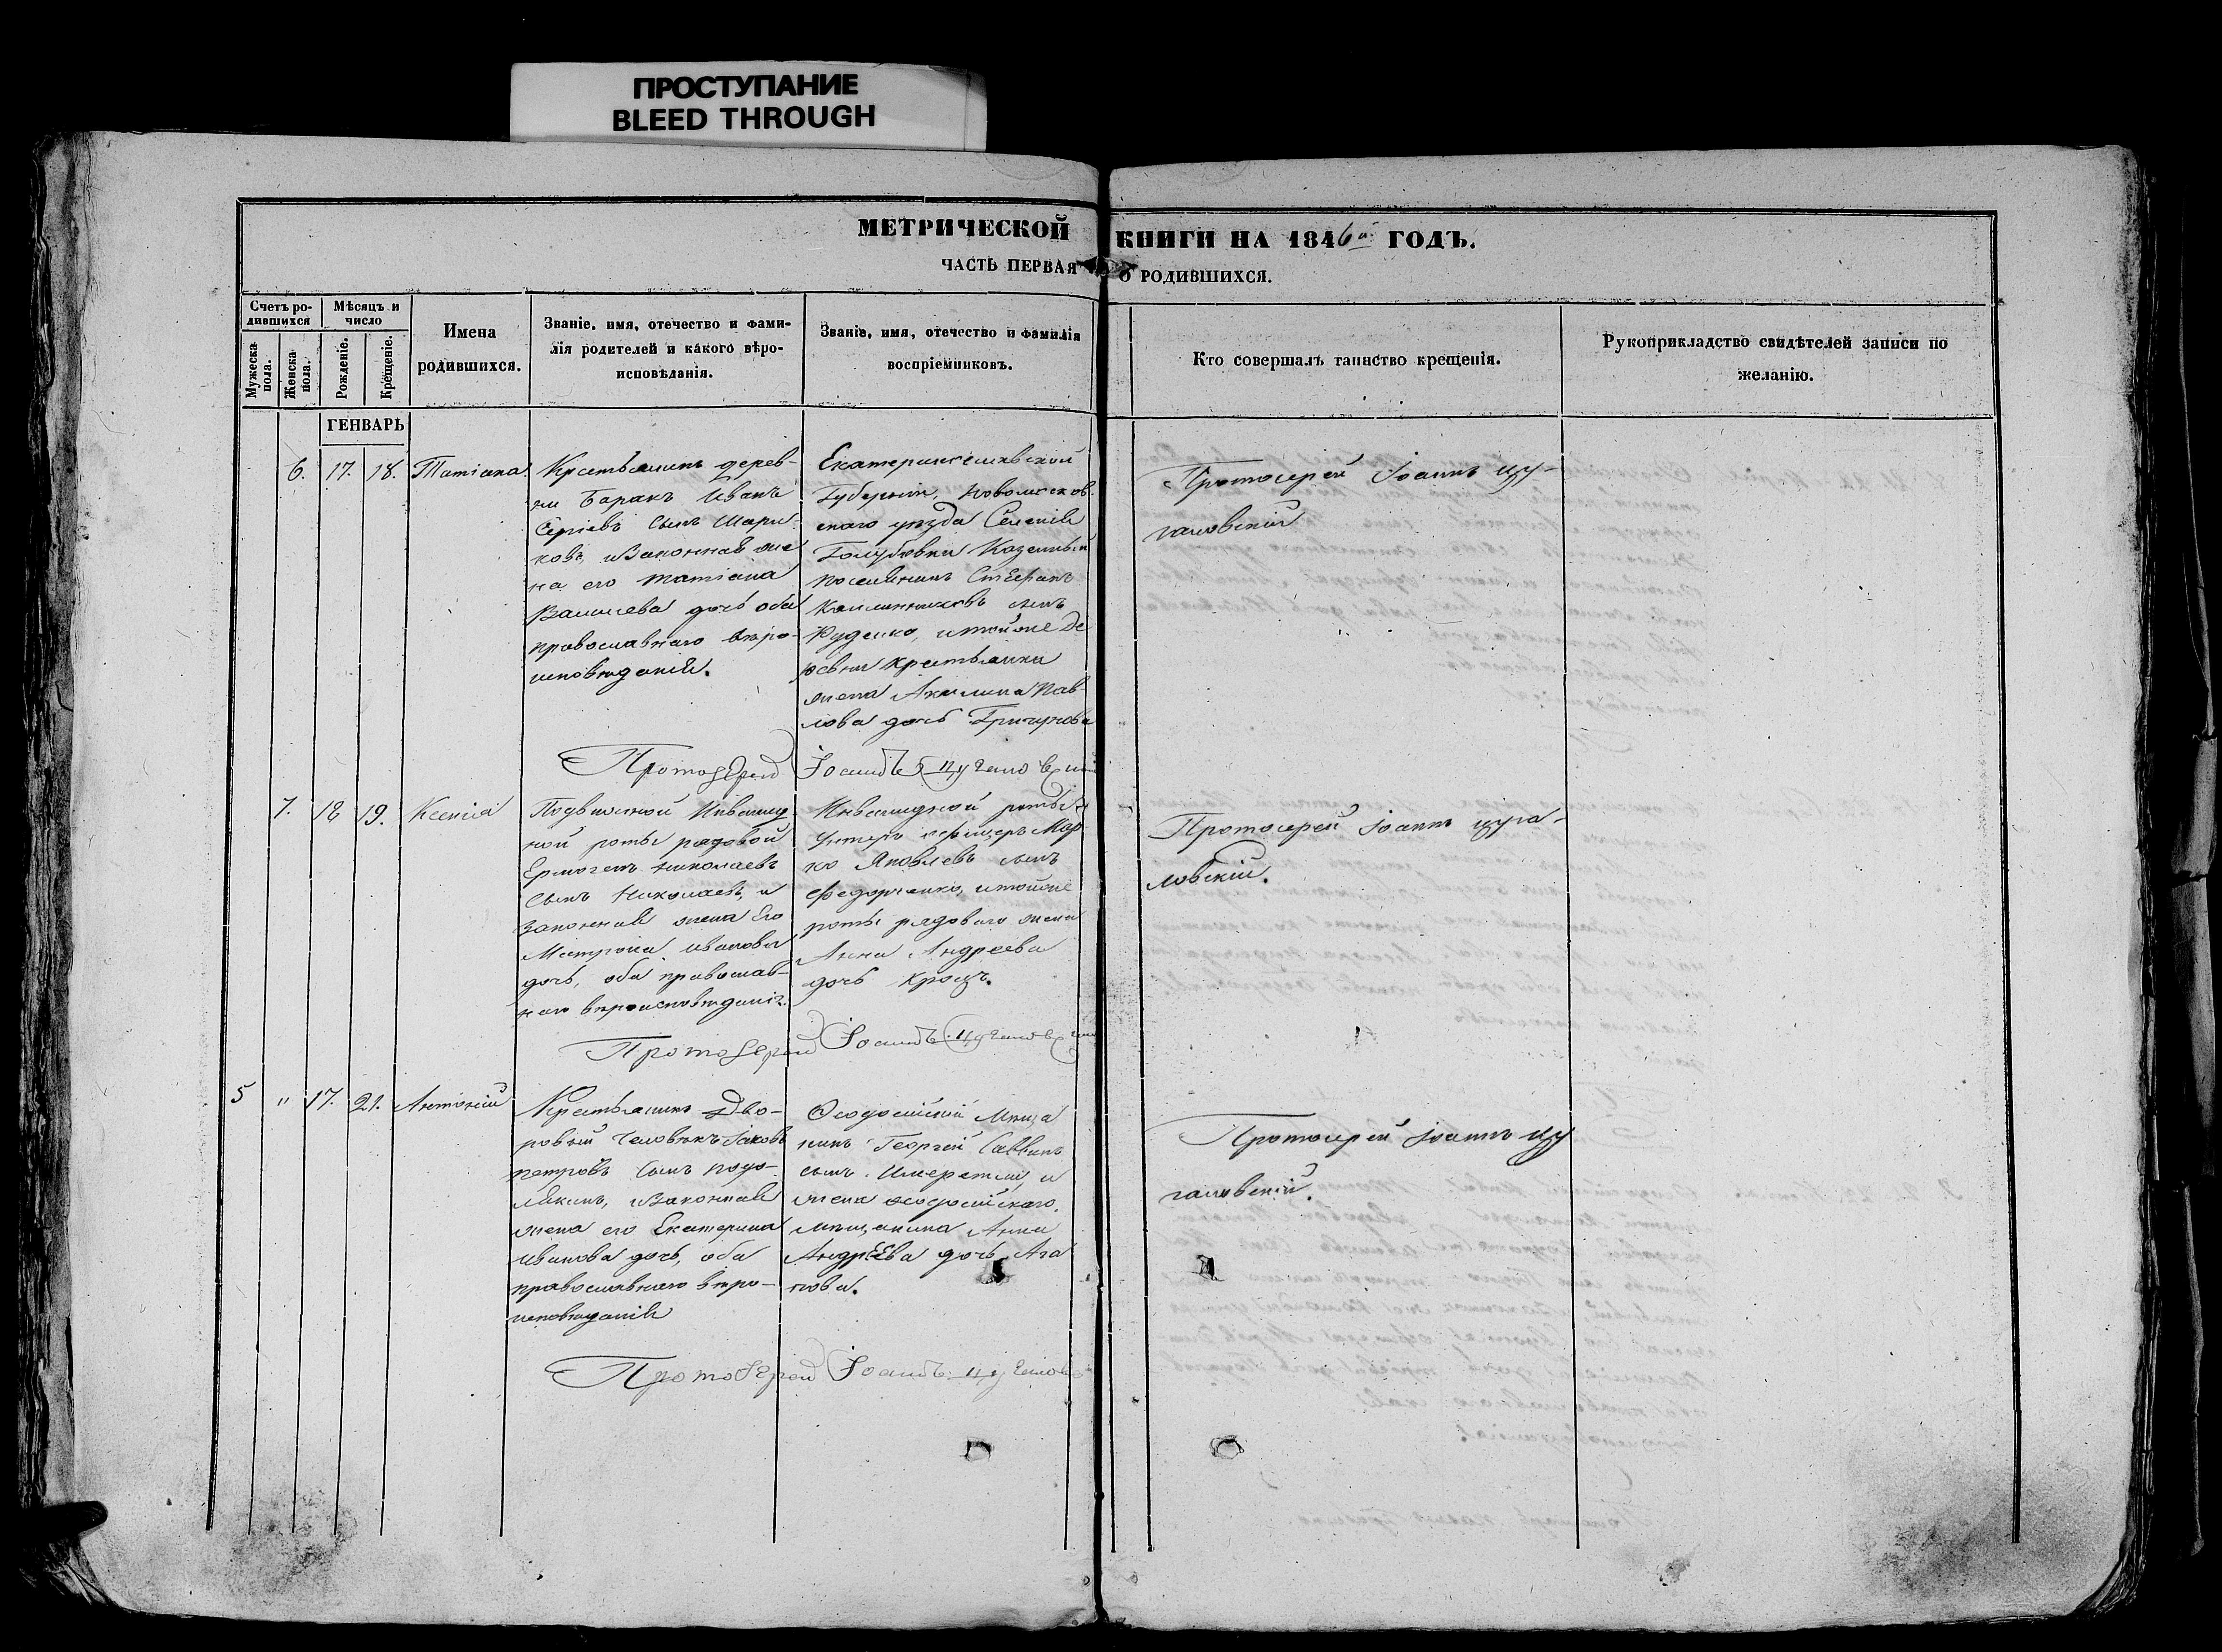 ПРОСТУПАНИЕ
BLEED THROUGH
МЕТРИЧЕСКОЙ КНИГИ НА 1846й ГОДЪ.
ЧАСТЬ ПЕРВАЯ О РОДИВШИХСЯ.
Счетъ ро-
дившихся
Мѣсяцъ и
число
Мужеска
пола.
Женска
пола.
Рожденіе.
Крещеніе.
Имена
родившихся.
Званіе, имя, отечество и фами-
лія родителей и какого вѣро-
исповѣданія.
Званіе, имя, отечество и фамилія
воспріемниковъ.
Кто совершалъ таинство крещенія.
Рукоприкладство свидѣтелей записи по
желанію.
ГЕНВАРЬ
6. 17. 18. Татіана
Крестьянинъ дерев-
ни Баракъ Иванъ
Сергіевъ сынъ Шари
ковъ, и законная же
на его Татіана
дочь оба
православнаго вѣро-
исповѣданія.
Екатеринославской
Губерніи, Новомосков-
скаго уѣзда Селенія
Голубовки Казенный
поселянинъ Стефанъ
Калинниковъ сынъ
Руденко, и той же де
ревни крестьянки
жена Акилина Пав-
лова дочь
Протоіерей Іоаннъ Цу-
галовскій
Протоіерей Іоаннъ Цугаловскій
7. 18 19. Ксенія
Подвижной Инвалид
ной роты рядовой
Ермогенъ Николаевъ
сынъ Николаевъ, и
законная жена его
Матрона Иванова
дочь, оба православ-
наго вѣроисповѣданія.
Инвалидной роты
Унтеръ офицеръ Мар
ко Яковлевъ сынъ
Федорченко, и той же
роты рядоваго жена
Анна Андреева
дочь Кроцъ.
Протоіерей Іоаннъ Цуга-
ловскій.
Протоіерей Іоаннъ Цугаловскій
5 " 17. 21. Антоній
Крестьянинъ Дво-
ровый человѣкъ Іаковъ
Петровъ сынъ
и законная
жена его Екатерина
Иванова дочь, оба
православнаго вѣро-
исповѣданія
Ѳеодосійскій Мѣща
нинъ Георгій Саввинъ
сынъ и
жена ѳеодосійскаго
мѣщанина Анна
Андреева дочь Ага
пова.
Протоіерей Іоаннъ Цу
галовскій.
Протоіерей Іоаннъ Цугалов